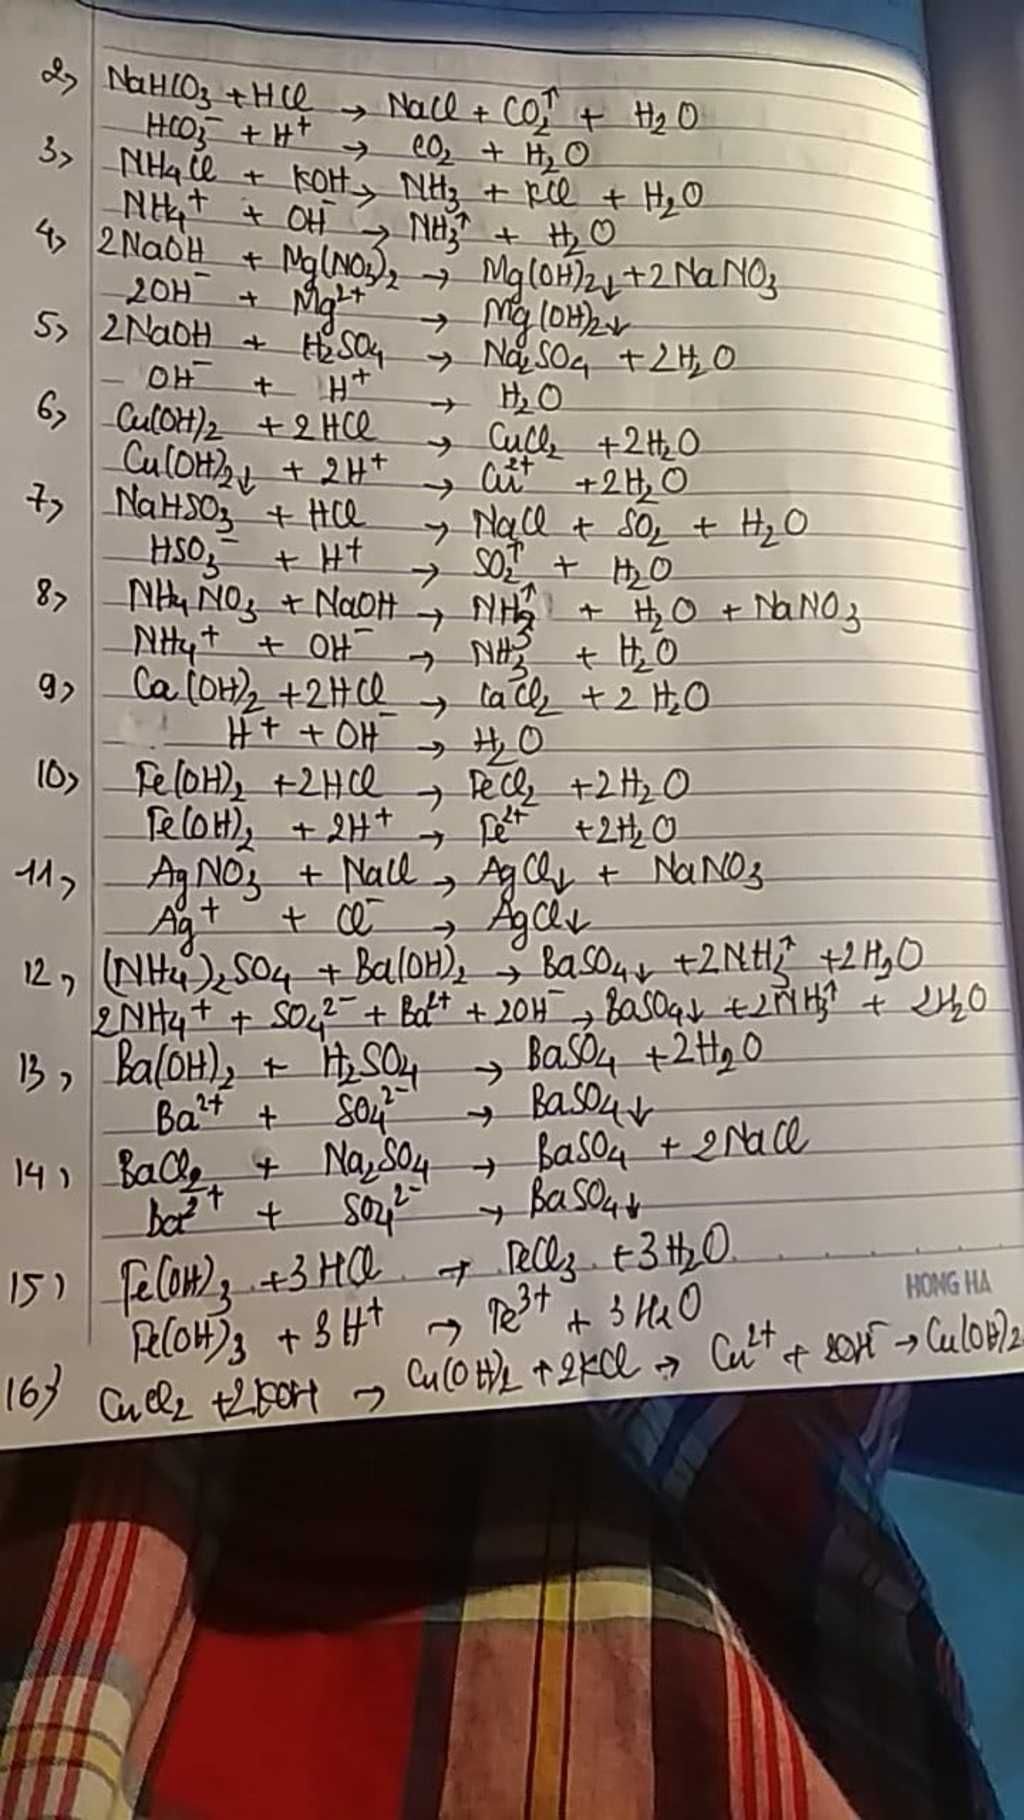 2, NaHCO3 + HCl → NaCl + CO2↑ + H2O
HCO3⁻ + H⁺ → CO2 + H2O
3, NH4Cl + KOH → NH3 + KCl + H2O
NH4⁺ + OH⁻ → NH3↑ + H2O
4, 2NaOH + Mg(NO3)2 → Mg(OH)2↓ + 2NaNO3
2OH⁻ + Mg²⁺ → Mg(OH)2↓
5, 2NaOH + H2SO4 → Na2SO4 + 2H2O
OH⁻ + H⁺ → H2O
6, Cu(OH)2 + 2HCl → CuCl2 + 2H2O
Cu(OH)2↓ + 2H⁺ → Cu²⁺ + 2H2O
7, NaHSO3 + HCl → NaCl + SO2 + H2O
HSO3⁻ + H⁺ → SO2↑ + H2O
8, NH4NO3 + NaOH → NH3↑ + H2O + NaNO3
NH4⁺ + OH⁻ → NH3 + H2O
9, Ca(OH)2 + 2HCl → CaCl2 + 2H2O
H⁺ + OH⁻ → H2O
10, Fe(OH)2 + 2HCl → FeCl2 + 2H2O
Fe(OH)2 + 2H⁺ → Fe²⁺ + 2H2O
11, AgNO3 + NaCl → AgCl↓ + NaNO3
Ag⁺ + Cl⁻ → AgCl↓
12, (NH4)2SO4 + Ba(OH)2 → BaSO4↓ + 2NH3↑ + 2H2O
2NH4⁺ + SO4²⁻ + Ba²⁺ + 2OH⁻ → BaSO4↓ + 2NH3↑ + 2H2O
13, Ba(OH)2 + H2SO4 → BaSO4 + 2H2O
Ba²⁺ + SO4²⁻ → BaSO4↓
14, BaCl2 + Na2SO4 → BaSO4 + 2NaCl
Ba²⁺ + SO4²⁻ → BaSO4↓
15) Fe(OH)3 + 3HCl → FeCl3 + 3H2O
HONG HA
Fe(OH)3 + 3H⁺ → Fe³⁺ + 3H2O
16) CuCl2 + 2KOH → Cu(OH)2 + 2KCl → Cu²⁺ + 2OH⁻ → Cu(OH)2